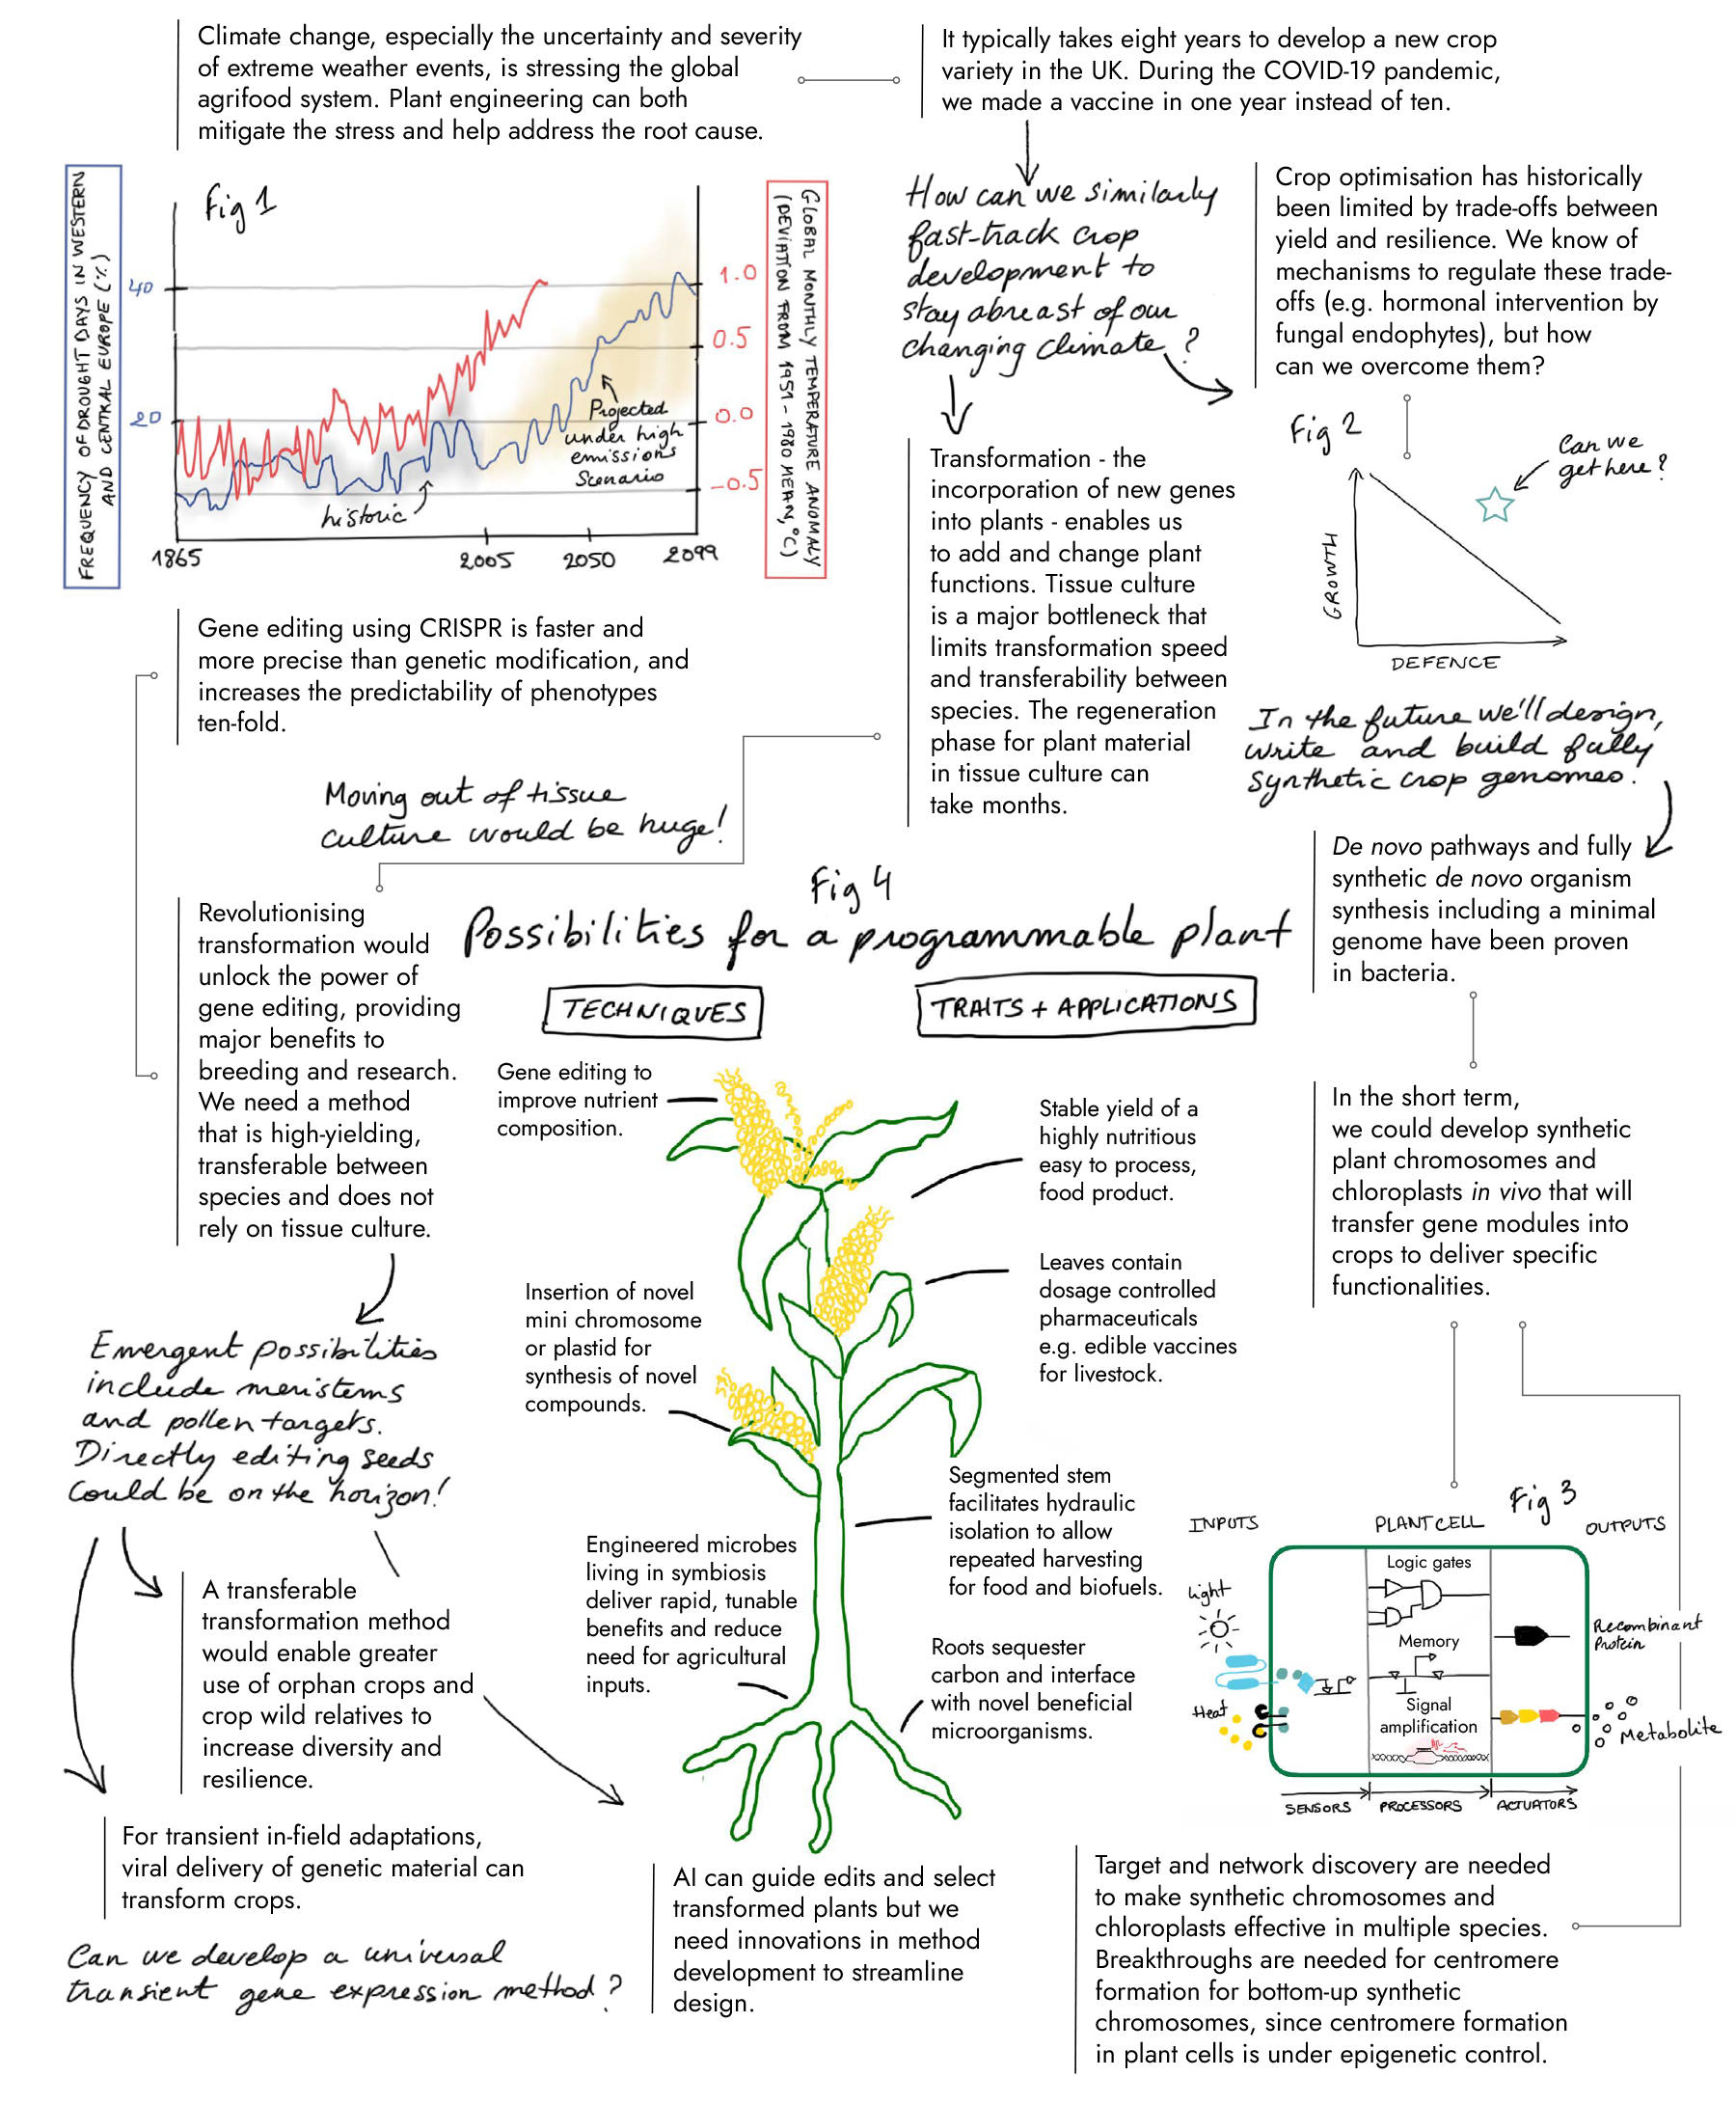 Climate change, especially the uncertainty and severity
of extreme weather events, is stressing the global
agrifood system. Plant engineering can both
mitigate the stress and help address the root cause.
It typically takes eight years to develop a new crop
variety in the UK. During the COVID-19 pandemic,
we made a vaccine in one year instead of ten.
How can we similarly
fast-track crop
development to
stay abreast of our
changing climate?
Crop optimisation has historically
been limited by trade-offs between
yield and resilience. We know of
mechanisms to regulate these trade-
offs (e.g. hormonal intervention by
fungal endophytes), but how
can we overcome them?
Fig 1
FREQUENCY OF DROUGHT DAYS IN WESTERN
AND CENTRAL EUROPE (%)
40
20
GLOBAL MONTHLY TEMPERATURE ANOMALY
(DEVIATION FROM 1951-1980 MEAN, °C)
1.0
0.5
0.0
-0.5
Projected
under high
emissions
Scenario
historic
1865
2005
2050
2099
Fig 2
Can we
get here?
GROWTH
DEFENCE
Transformation - the
incorporation of new genes
into plants - enables us
to add and change plant
functions. Tissue culture
is a major bottleneck that
limits transformation speed
and transferability between
species. The regeneration
phase for plant material
in tissue culture can
take months.
Gene editing using CRISPR is faster and
more precise than genetic modification, and
increases the predictability of phenotypes
ten-fold.
Moving out of tissue
culture would be huge!
In the future we'll design,
write and build fully
synthetic crop genomes.
De novo pathways and fully
synthetic de novo organism
synthesis including a minimal
genome have been proven
in bacteria.
Revolutionising
transformation would
unlock the power of
gene editing, providing
major benefits to
breeding and research.
We need a method
that is high-yielding,
transferable between
species and does not
rely on tissue culture.
Fig 4
Possibilities for a programmable plant
TECHNIQUES
TRAITS + APPLICATIONS
Gene editing to
improve nutrient
composition.
Stable yield of a
highly nutritious
easy to process,
food product.
Insertion of novel
mini chromosome
or plastid for
synthesis of novel
compounds.
Leaves contain
dosage controlled
pharmaceuticals
e.g. edible vaccines
for livestock.
Engineered microbes
living in symbiosis
deliver rapid, tunable
benefits and reduce
need for agricultural
inputs.
Segmented stem
facilitates hydraulic
isolation to allow
repeated harvesting
for food and biofuels.
Roots sequester
carbon and interface
with novel beneficial
microorganisms.
In the short term,
we could develop synthetic
plant chromosomes and
chloroplasts in vivo that will
transfer gene modules into
crops to deliver specific
functionalities.
Emergent possibilities
include meristems
and pollen targets.
Directly editing seeds
Could be on the horizon!
A transferable
transformation method
would enable greater
use of orphan crops and
crop wild relatives to
increase diversity and
resilience.
For transient in-field adaptations,
viral delivery of genetic material can
transform crops.
Can we develop a universal
transient gene expression method?
AI can guide edits and select
transformed plants but we
need innovations in method
development to streamline
design.
Fig 3
INPUTS
PLANT CELL
OUTPUTS
Light
Heat
Logic gates
Memory
Signal
amplification
Recombinant
Protein
Metabolite
SENSORS
PROCESSORS
ACTUATORS
Target and network discovery are needed
to make synthetic chromosomes and
chloroplasts effective in multiple species.
Breakthroughs are needed for centromere
formation for bottom-up synthetic
chromosomes, since centromere formation
in plant cells is under epigenetic control.